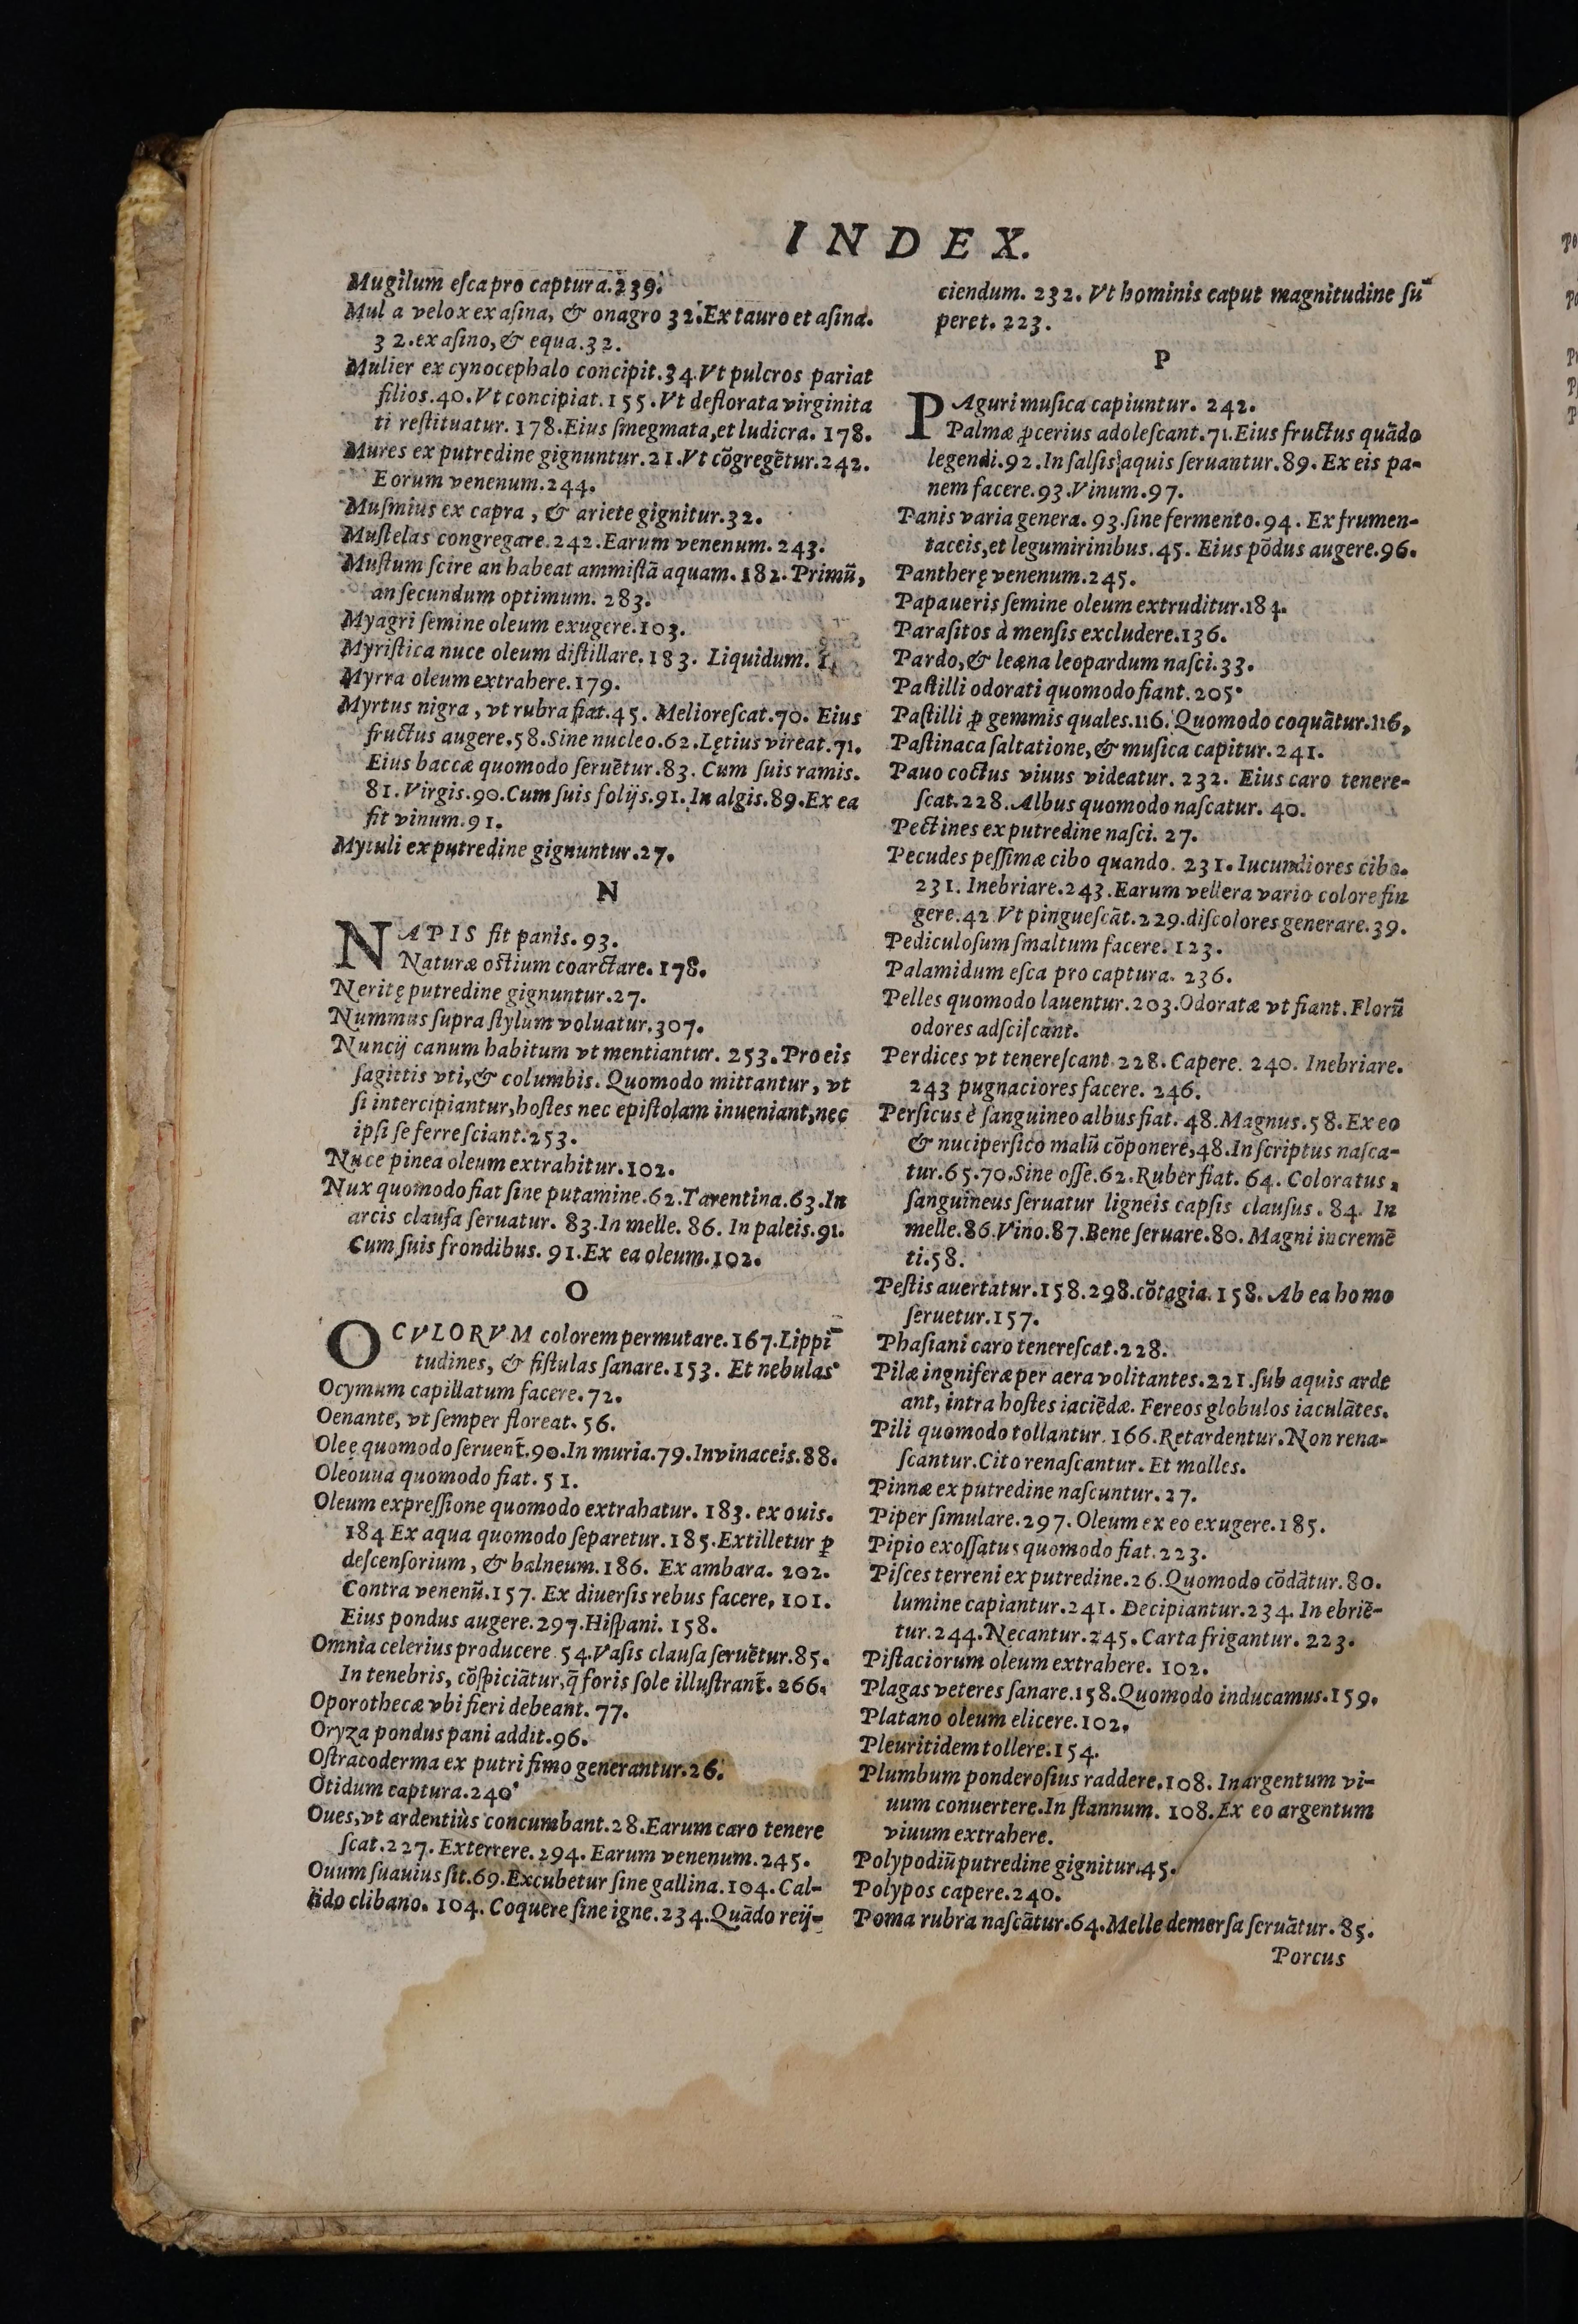 INDEX.
Mugilum eſca pro captura.239.
Mul a velox ex aſina, & onagro 32.Ex tauro et aſina.
32.ex aſino, & equa.32.
Mulier ex cynocephalo concipit.34.Vt pulcros pariat
filios.40.Vt concipiat.155.Vt deflorata virginita
ti reſtituatur. 178.Eius ſmegmata,et ludicra. 178.
Mures ex putredine gignuntur.21.Vt cōgregētur.242.
Eorum venenum.244.
Muſmius ex capra , & ariete gignitur.32.
Muſtelas congregare.242.Earum venenum. 243.
Muſtum ſcire an habeat ammiſtā aquam. 182. Primū,
an ſecundum optimum. 283.
Myagri ſemine oleum exugere.103.
Myriſtica nuce oleum diſtillare. 183. Liquidum. 1.
Myrra oleum extrahere.179.
Myrtus nigra , vt rubra fiat.45. Melioreſcat.70. Eius
fructus augere.58.Sine nucleo.62.Lętius vireat.71.
Eius baccæ quomodo ſeruētur.83. Cum ſuis ramis.
81.Virgis.90.Cum ſuis folijs.91. In algis.89.Ex ea
fit vinum.91.
Mytuli ex putredine gignuntur.27.
N
NAPIS fit panis. 93.
Naturæ oſtium coarctare. 178.
Neritę putredine gignuntur.27.
Nummus ſupra ſtylum voluatur.307.
Nuncij canum habitum vt mentiantur. 253. Pro eis
ſagittis vti, & columbis. Quomodo mittantur , vt
ſi intercipiantur, hoſtes nec epiſtolam inueniant,nec
ipſi ſe ferre ſciant.253.
Nuce pinea oleum extrahitur.102.
Nux quomodo fiat ſine putamine.62.Tarentina.63.In
arcis clauſa ſeruatur. 83.In melle. 86. In paleis.91.
Cum ſuis frondibus. 91.Ex ea oleum.102.
O
OCVLORVM colorem permutare.167.Lippi‾
tudines, & fiſtulas ſanare.153. Et nebulas.
Ocymum capillatum facere.72.
Oenante, vt ſemper floreat. 56.
Oleę quomodo ſeruent̄.90.In muria.79.In vinaceis.88.
Oleouua quomodo fiat. 51.
Oleum expreſſione quomodo extrahatur. 183. ex ouis.
184 Ex aqua quomodo ſeparetur.185.Extilletur ꝑ
deſcenſorium , & balneum.186. Ex ambara. 202.
Contra venenū.157. Ex diuerſis rebus facere, 101.
Eius pondus augere.297.Hiſpani. 158.
Omnia celerius producere 54.Vaſis clauſa ſeruētur.85.
In tenebris, cōſpiciātur,q̄ foris ſole illuſtrant̄. 266.
Oporothecæ vbi fieri debeant. 77.
Oryza pondus pani addit.96.
Oſtracoderma ex putri fimo generantur.26.
Otidum captura.240.
Oues, vt ardentiùs concumbant.28.Earum caro tenere
ſcat.227. Exterrere.294. Earum venenum.245.
Ouum ſuauius ſit.69.Excubetur ſine gallina.104. Cal-
lido clibano. 104. Coquere ſine igne.234.Quādo reij-
ciendum. 232. Vt hominis caput magnitudine ſu‾
peret. 223.
P
PAguri muſica capiuntur. 242.
Palmæ ꝓcerius adoleſcant.71.Eius fructus quādo
legendi.92.In ſalſis aquis ſeruantur.89. Ex eis pa-
nem facere.93.Vinum.97.
Panis varia genera. 93.ſine fermento.94. Ex frumen-
taceis,et legumirinibus.45. Eius pōdus augere.96.
Pantherę venenum.245.
Papaueris ſemine oleum extruditur.184.
Paraſitos à menſis excludere.136.
Pardo, & leæna leopardum naſci.33.
Paſtilli odorati quomodo fiant.205.
Paſtilli ꝓ gemmis quales.116. Quomodo coquātur.116,
Paſtinaca ſaltatione, & muſica capitur.241.
Pauo coctus viuus videatur. 232. Eius caro tenere-
ſcat.228.Albus quomodo naſcatur. 40.
Pectines ex putredine naſci. 27.
Pecudes peſſimæ cibo quando. 231. Iucundiores cibo.
231. Inebriare.243.Earum vellera vario colore fin
gere.42 Vt pingueſcāt.229.diſcolores generare.39.
Pediculoſum ſmaltum facere. 123.
Palamidum eſca pro captura. 236.
Pelles quomodo lauentur.203.Odoratæ vt fiant. Florū
odores adſciſcant.
Perdices vt tenereſcant.228. Capere. 240. Inebriare.
243 pugnaciores facere. 246.
Perſicus è ſanguineo albus fiat. 48.Magnus.58.Ex eo
& nuciperſico malū cōponere,48.Inſcriptus naſca-
tur.65.70.Sine oſſe.62.Ruber fiat. 64. Coloratus,
ſanguineus ſeruatur ligneis capſis clauſus . 84. In
melle.86.Vino.87.Bene ſeruare.80. Magni incremē
ti.58.
Peſtis auertatur.158.298.cōtagia.158. Ab ea homo
ſeruetur.157.
Phaſiani caro tenereſcat.228.
Pilæ ingniferæ per aera volitantes.221.ſub aquis arde
ant, intra hoſtes iaciēdæ. Fereos globulos iaculātes.
Pili quomodo tollantur.166.Retardentur.Non rena-
ſcantur.Cito renaſcantur. Et molles.
Pinnæ ex putredine naſcuntur.27.
Piper ſimulare.297. Oleum ex eo exugere.185.
Pipio exoſſatus quomodo fiat.223.
Piſces terreni ex putredine.26.Quomodo cōdātur.80.
lumine capiantur.241. Decipiantur.234. In ebriē-
tur.244.Necantur.245.Carta frigantur. 223.
Piſtaciorum oleum extrahere. 102.
Plagas veteres ſanare.158.Quomodo inducamus.159.
Platano oleum elicere.102.
Pleuritidem tollere.154.
Plumbum ponderoſius raddere.108. In argentum vi-
uum conuertere.In ſtannum. 108.Ex eo argentum
viuum extrahere.
Polypodiū putredine gignitur.45.
Polypos capere.240.
Poma rubra naſcātur.64.Melle demerſa ſeruātur. 85.
Porcus